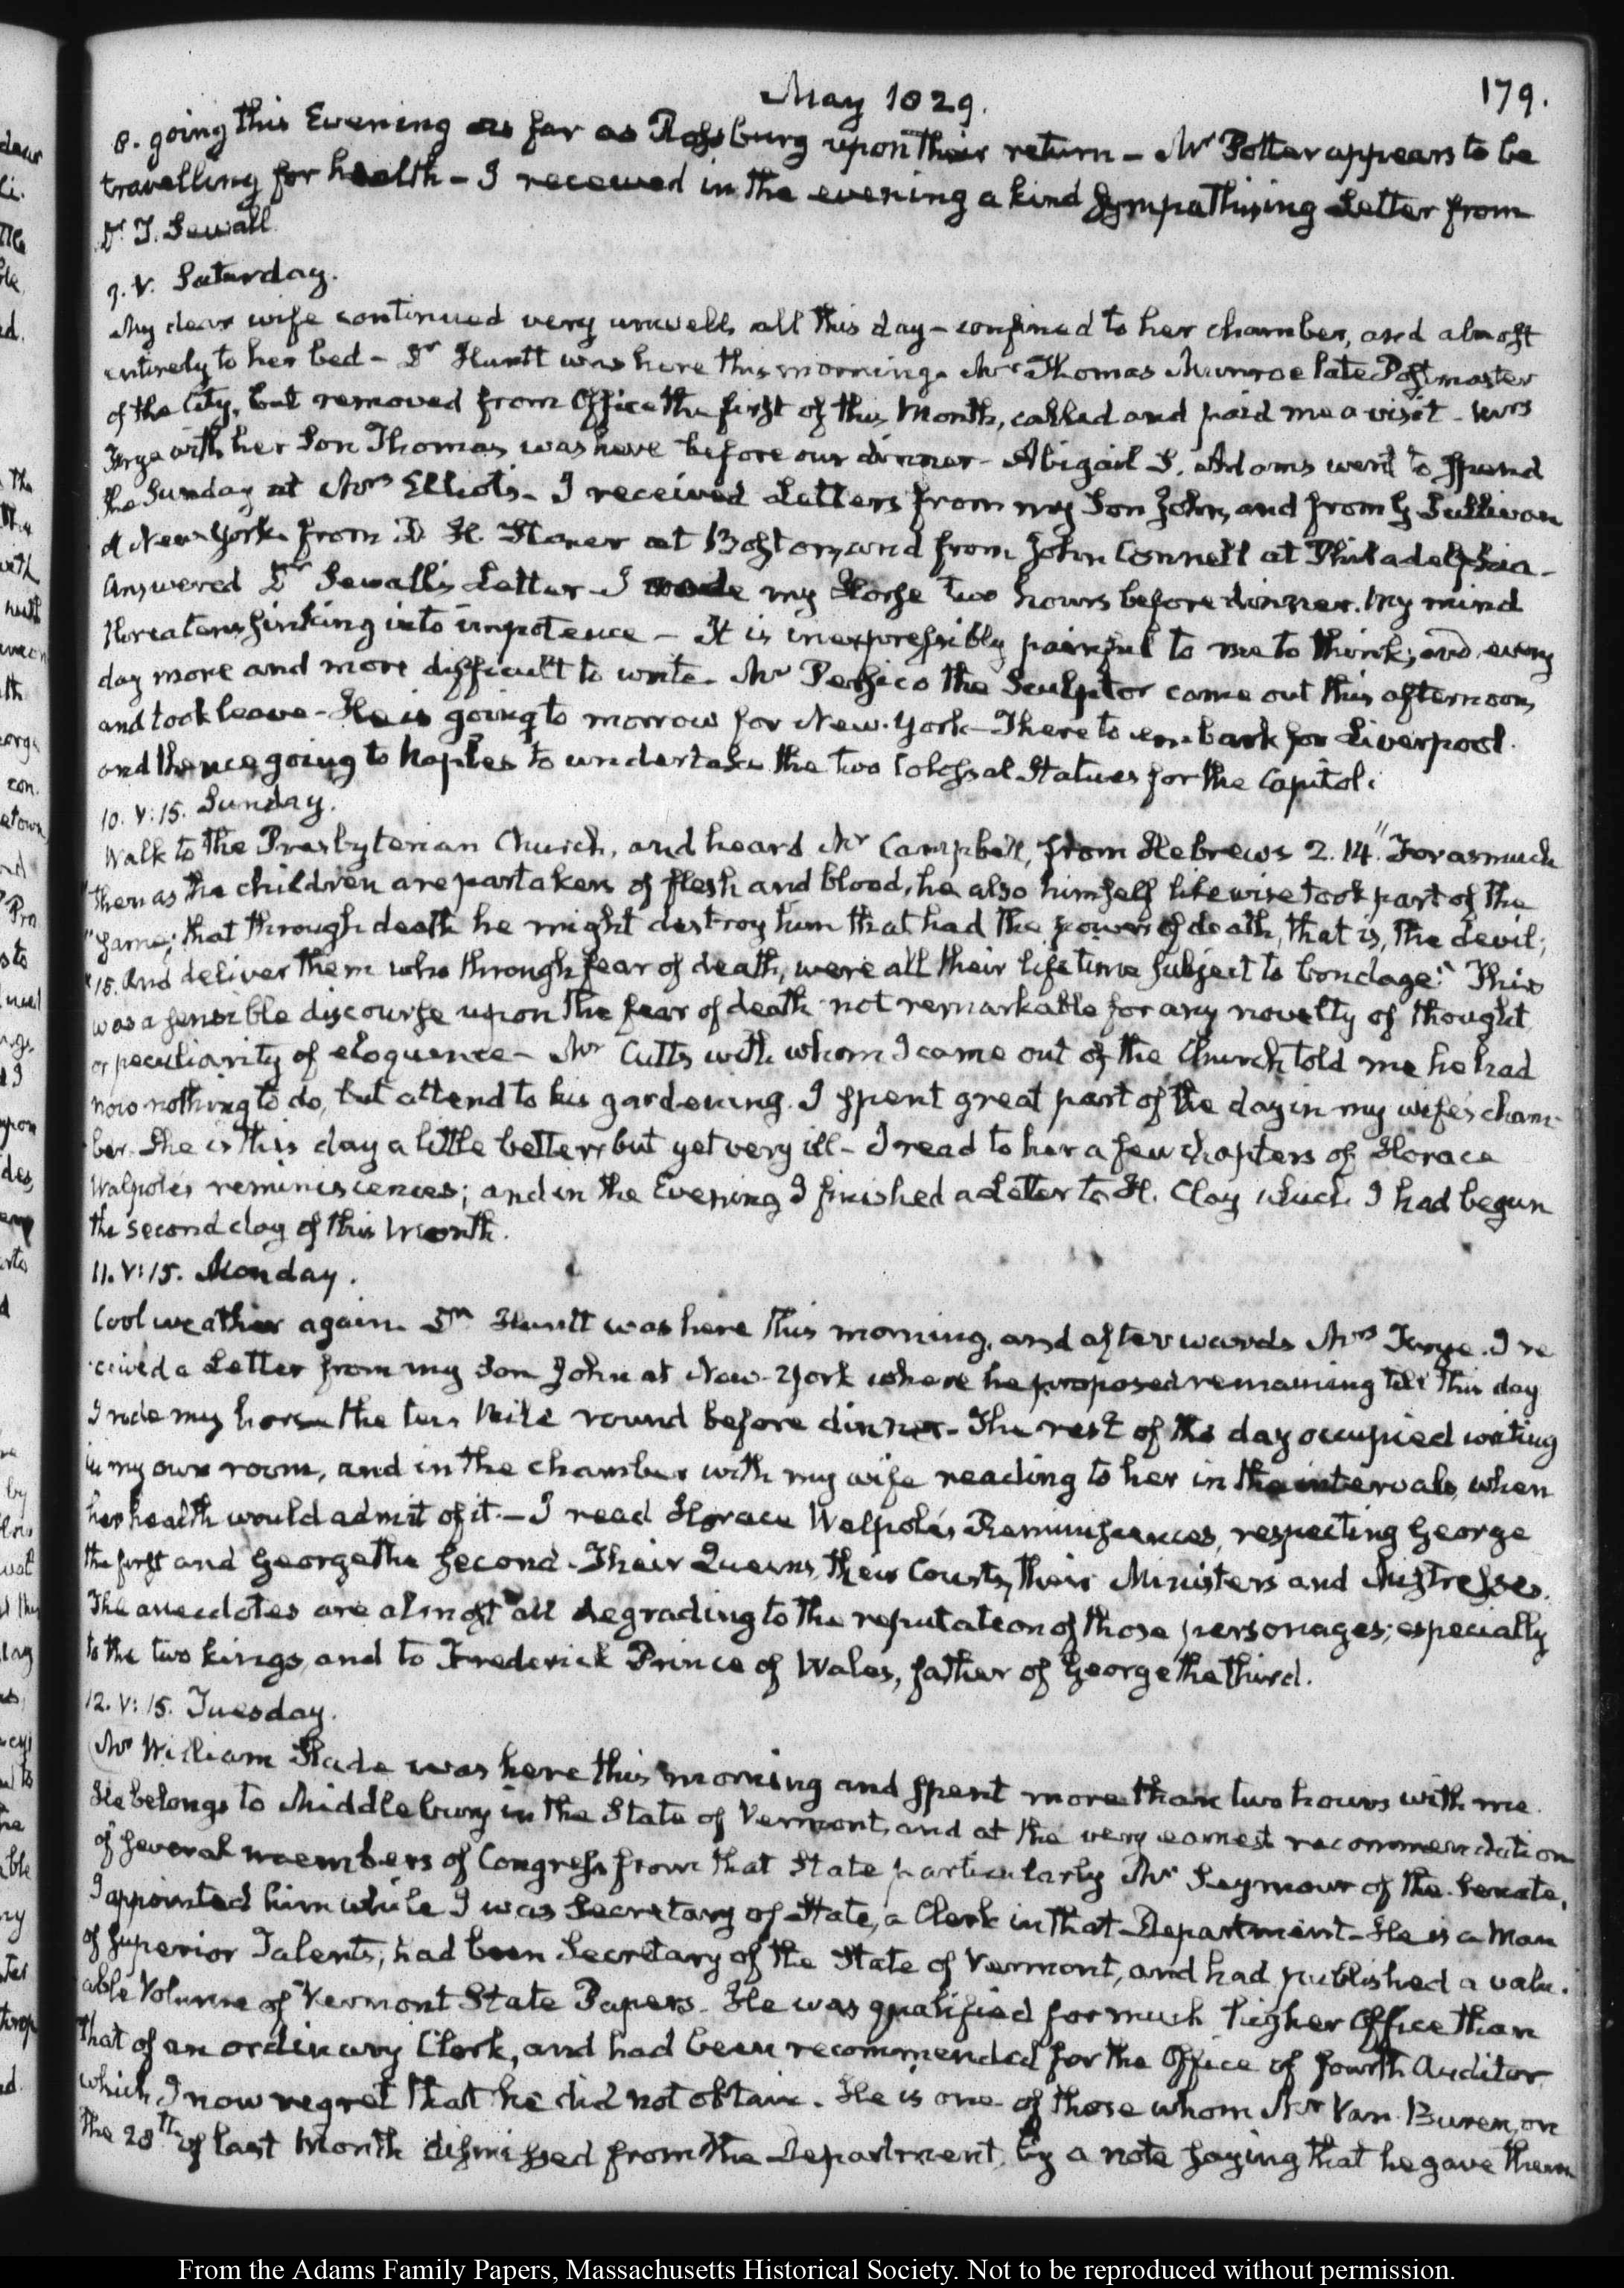 May 1829.
179.
8. going this Evening as far as Rossburg upon their return – Mr Potter appears to be
travelling for health – I received in the evening a kind sympathising Letter from
Dr T. Sewall.
9. V. Saturday.
My dear wife continued very unwell, all this day – confined to her chamber, and almost
entirely to her bed – Dr Huntt was here this morning. Mr Thomas Munroe late Postmaster
of the City, but removed from Office the first of this Month, called and paid me a visit – Mrs
Frye with her Son Thomas, was here before our dinner – Abigail S. Adams went to spend
the Sunday at Mrs Elliot's – I received Letters from my Son John, and from G Sullivan
at New-York from D H. Storer at Boston, and from John Connell at Philadelphia –
Answered Dr Sewall's Letter – I rode my Horse two hours before dinner. My mind
threatens sinking into impotence – It is inexpressibly painful to me to think; and every
day more and more difficult to write. Mr Persico the Sculptor came out this afternoon,
and took leave – He is going to morrow for New-York – There to embark for Liverpool.
and thence going to Naples to undertake the two Colossal Statues for the Capitol.
10. V:15. Sunday.
Walk to the Presbyterian Church, and heard Mr Campbell, from Hebrews 2.14. "Forasmuch
"then as the children are partakers of flesh and blood, he also himself likewise took part of the
"same; that through death he might destroy him that had the power of death, that is, the devil;
"15. And deliver them who through fear of death, were all their lifetime subject to bondage." This
was a sensible discourse upon the fear of death not remarkable for any novelty of thought
or peculiarity of eloquence – Mr Cutts with whom I came out of the Church told me he had
now nothing to do, but attend to his gardening. I spent great part of the day in my wife's cham-
ber. She is this day a little better, but yet very ill – I read to her a few chapters of Horace
Walpole's reminiscences; and in the Evening I finished a Letter to H. Clay which I had begun
the second day of this Month.
11. V:15. Monday.
Cool weather again. Dr Huntt was here this morning, and afterwards Mrs Frye. I re
ceived a Letter from my Son John at New-York where he proposed remaining till this day
I rode my horse the ten Mile round before dinner – The rest of the day occupied writing
in my own room, and in the chamber with my wife reading to her in the intervals, when
her health would admit of it. – I read Horace Walpole's Reminiscences, respecting George
the first and George the second – Their Queens, their Courts, their Ministers and Mistresses.
The anecdotes are almost all degrading to the reputation of those personages; especially
to the two kings, and to Frederick Prince of Wales, father of George the third.
12. V:15. Tuesday.
Mr William Slade was here this morning and spent more than two hours with me.
He belongs to Middlebury in the State of Vermont, and at the very earnest recommendation
of several members of Congress from that State particularly Mr Seymour of the Senate,
I appointed him while I was Secretary of State, a Clerk in that Department – He is a Man
of superior Talents; had been Secretary of the State of Vermont, and had published a valu-
able Volume of Vermont State Papers. He was qualified for much higher Office than
that of an ordinary Clerk, and had been recommended for the Office of fourth Auditor
which I now regret that he did not obtain. He is one of those whom Mr Van Buren, on
the 28th of last Month dismissed from the Department, by a note saying that he gave them
From the Adams Family Papers, Massachusetts Historical Society. Not to be reproduced without permission.